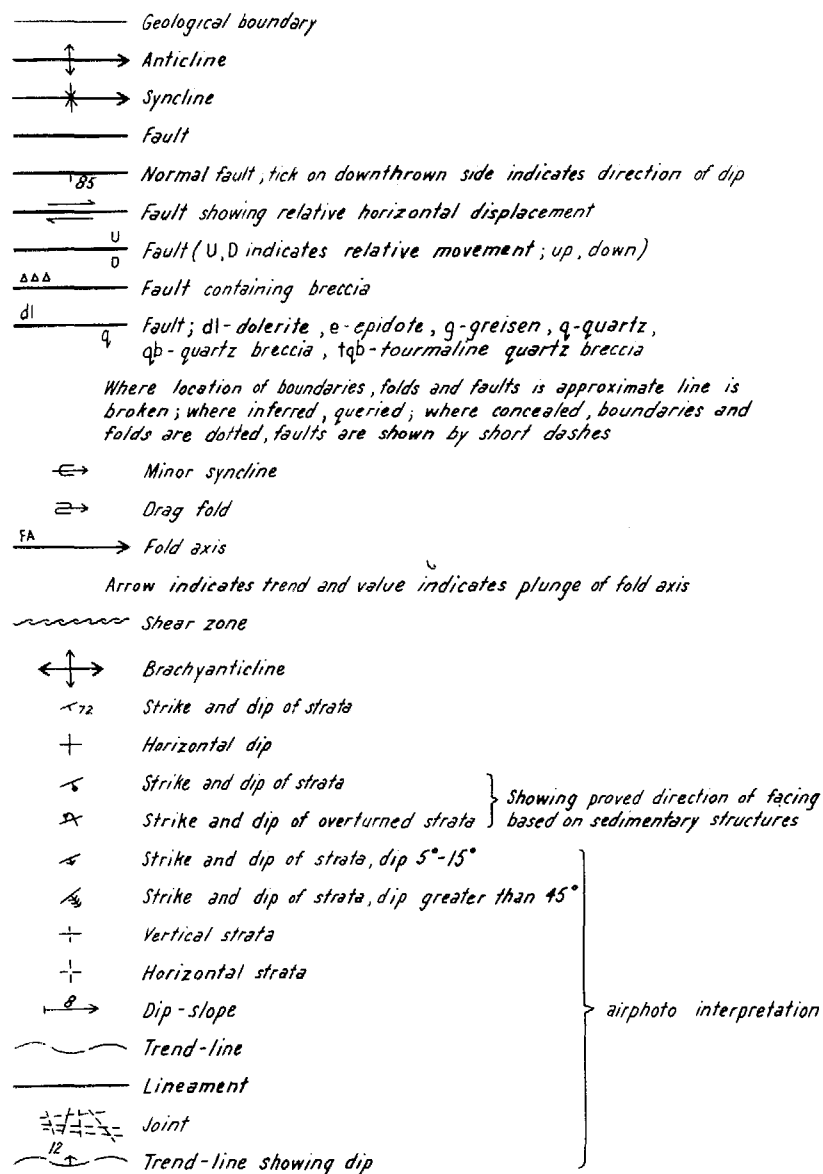 Geological boundary
Anticline
Syncline
Fault
85 Normal fault; tick on downthrown side indicates direction of dip
Fault showing relative horizontal displacement
U
D Fault (U,D indicates relative movement; up, down)
Fault containing breccia
dl
q Fault; dl-dolerite, e-epidote, g-greisen, q-quartz,
qb-quartz breccia, tqb-tourmaline quartz breccia
Where location of boundaries, folds and faults is approximate line is
broken; where inferred, queried; where concealed, boundaries and
folds are dotted, faults are shown by short dashes
Minor syncline
Drag fold
FA
Fold axis
Arrow indicates trend and value indicates plunge of fold axis
Shear zone
Brachyanticline
72 Strike and dip of strata
Horizontal dip
Strike and dip of strata
Strike and dip of overturned strata
Showing proved direction of facing
based on sedimentary structures
Strike and dip of strata, dip 5°-15°
Strike and dip of strata, dip greater than 45°
Vertical strata
Horizontal strata
8 Dip-slope
airphoto interpretation
Trend-line
Lineament
Joint
12
Trend-line showing dip